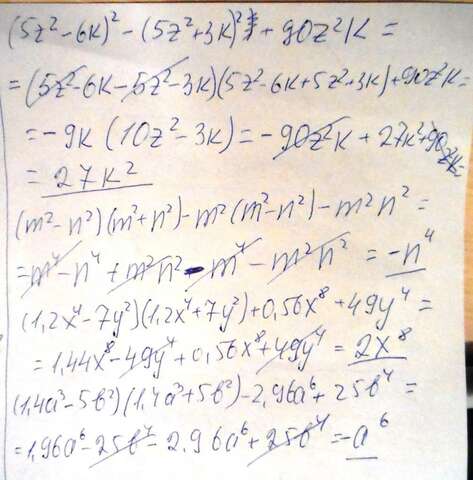 (5z²-6k)²-(5z²+3k)²+90z²k=
=(5z²-6k-5z²-3k)(5z²-6k+5z²+3k)+90z²k=
=-9k(10z²-3k)=-90z²k+27k²+90z²k=
=27k²
(m²-n²)(m²+n²)-m²(m²-n²)-m²n²=
=m⁴-n⁴+m²n²-m⁴-m²n²=-n⁴
(1,2x⁴-7y²)(1,2x⁴+7y²)+0,56x⁸+49y⁴=
=1,44x⁸-49y⁴+0,56x⁸+49y⁴=2x⁸
(1,4a³-5b²)(1,4a³+5b²)-2,96a⁶+25b⁴=
=1,96a⁶-25b⁴-2,96a⁶+25b⁴=-a⁶